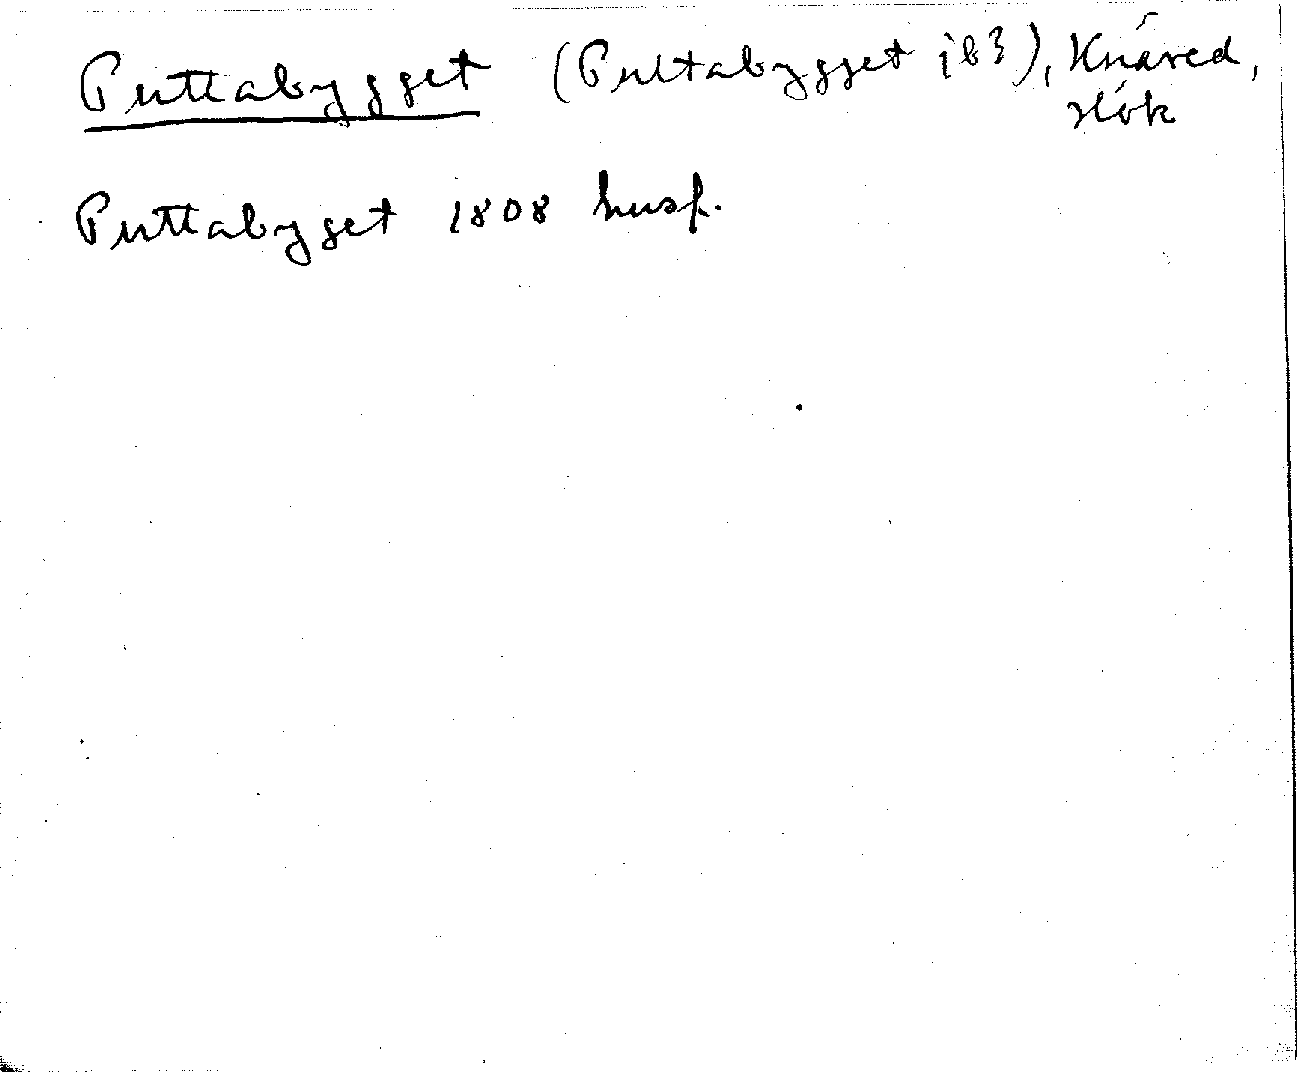 Puttabygget (Pultabygget jb 3), Knäred,
Hök
Puttabyget 1808 husf.